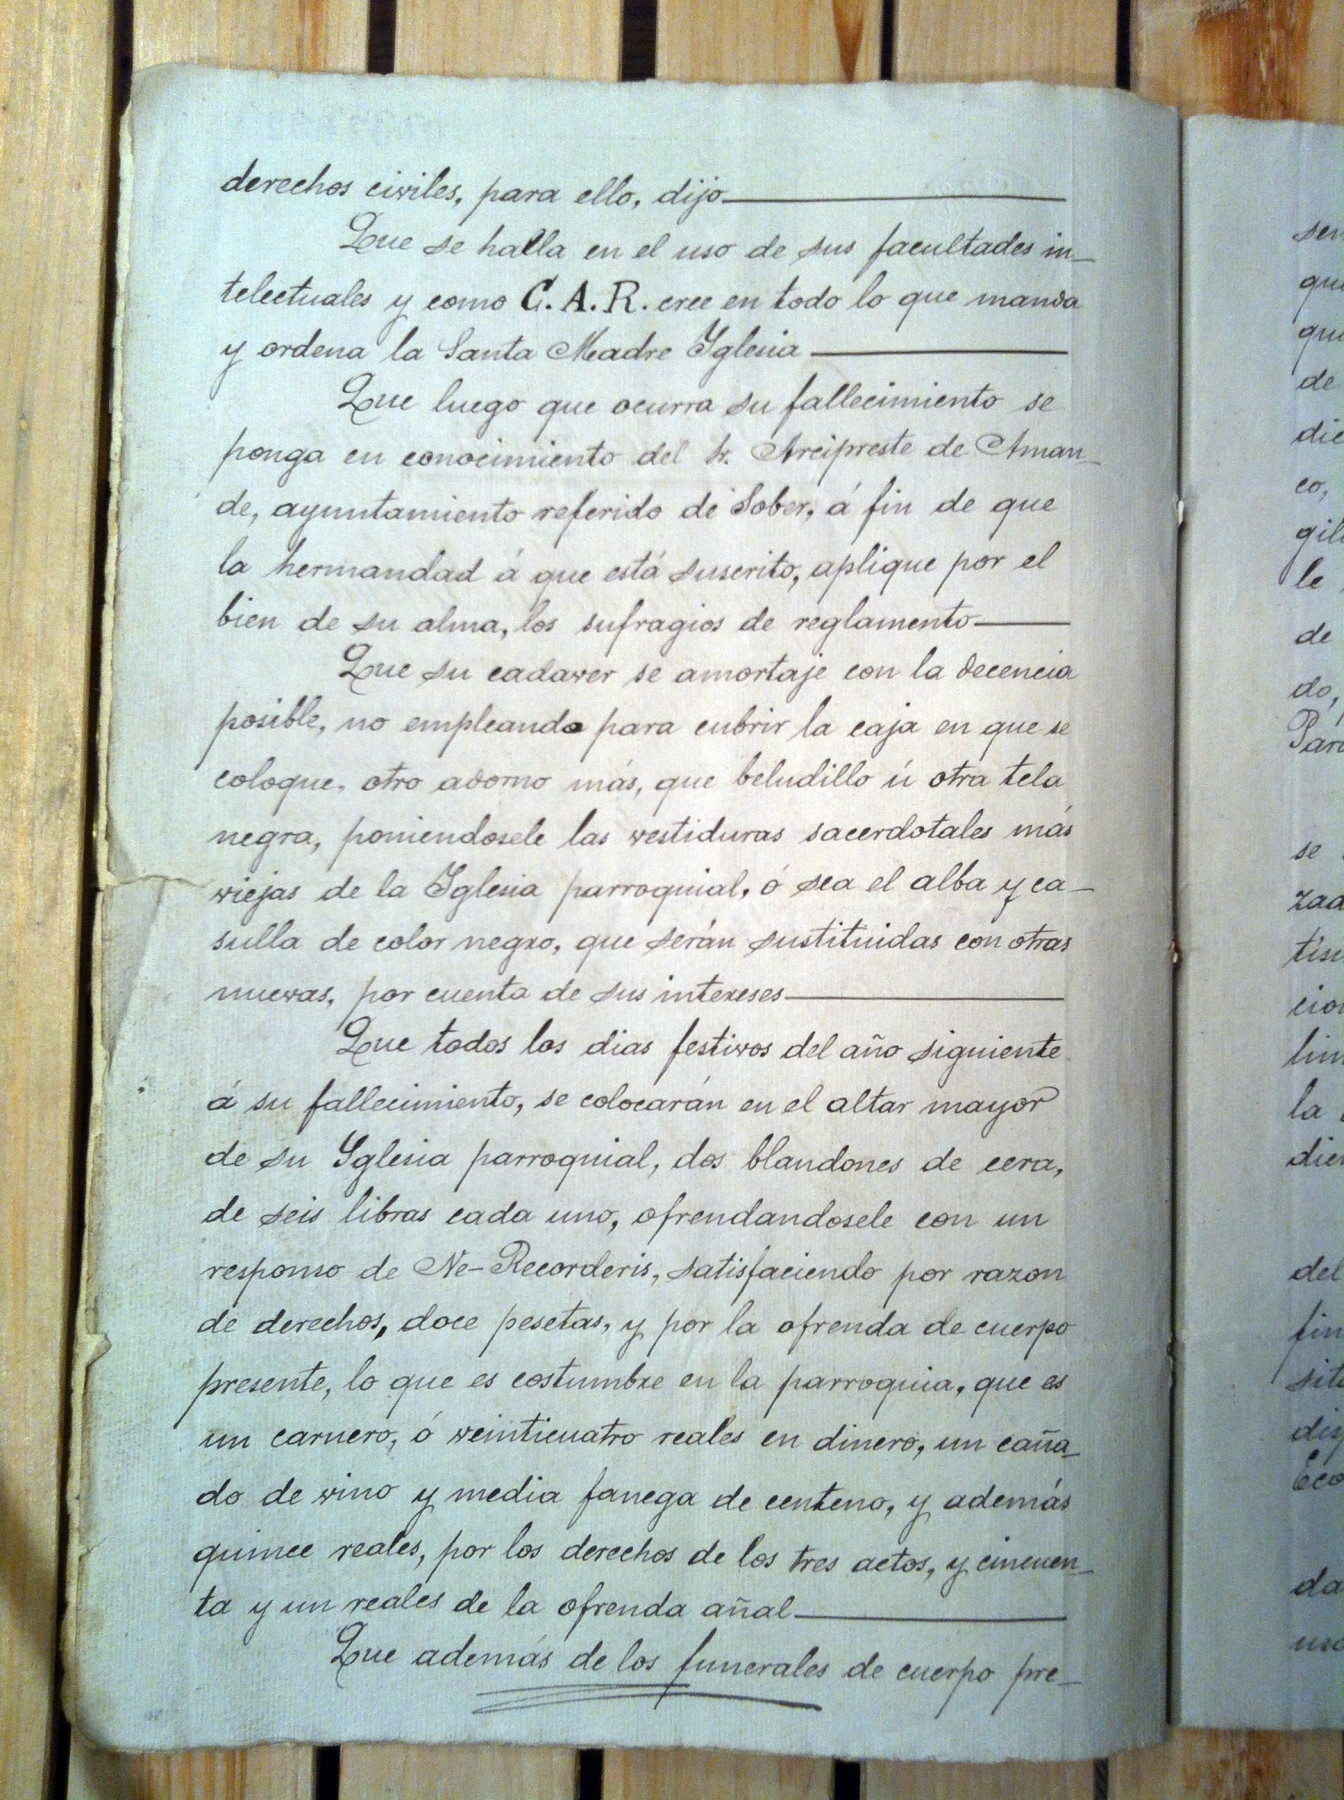 derechos civiles, para ello, dijo
Que se halla en el uso de sus facultades in-
telectuales y como C. A. R. cree en todo lo que manda
y ordena la Santa Madre Yglesia
Que luego que ocurra su fallecimiento se
ponga en conocimiento del Sr. Arcipreste de Aman-
de, ayuntamiento referido de Sober, á fin de que
la hermandad á que está suscrito, aplique por el
bien de su alma, los sufragios de reglamento
Que su cadaver se amortaje con la decencia
posible, no empleando para cubrir la caja en que se
coloque, otro adorno más, que beludillo ú otra tela
negra, poniendosele las vestiduras sacerdotales más
viejas de la Yglesia parroquial, ó sea el alba y ca-
sulla de color negro, que serán sustituidas con otras
nuevas, por cuenta de sus intereses
Que todos los dias festivos del año siguiente
á su fallecimiento, se colocarán en el altar mayor
de su Yglesia parroquial, dos blandones de cera,
de seis libras cada uno, ofrendandosele con un
responso de Ne-Recorderis, satisfaciendo por razon
de derechos, doce pesetas, y por la ofrenda de cuerpo
presente, lo que es costumbre en la parroquia, que es
un carnero, ó veinticuatro reales en dinero, un caña-
do de vino y media fanega de centeno, y además
quince reales, por los derechos de los tres actos, y cincuen-
ta y un reales de la ofrenda añal
Que además de los funerales de cuerpo pre-
de
co,
le
de
do,
se
la
del